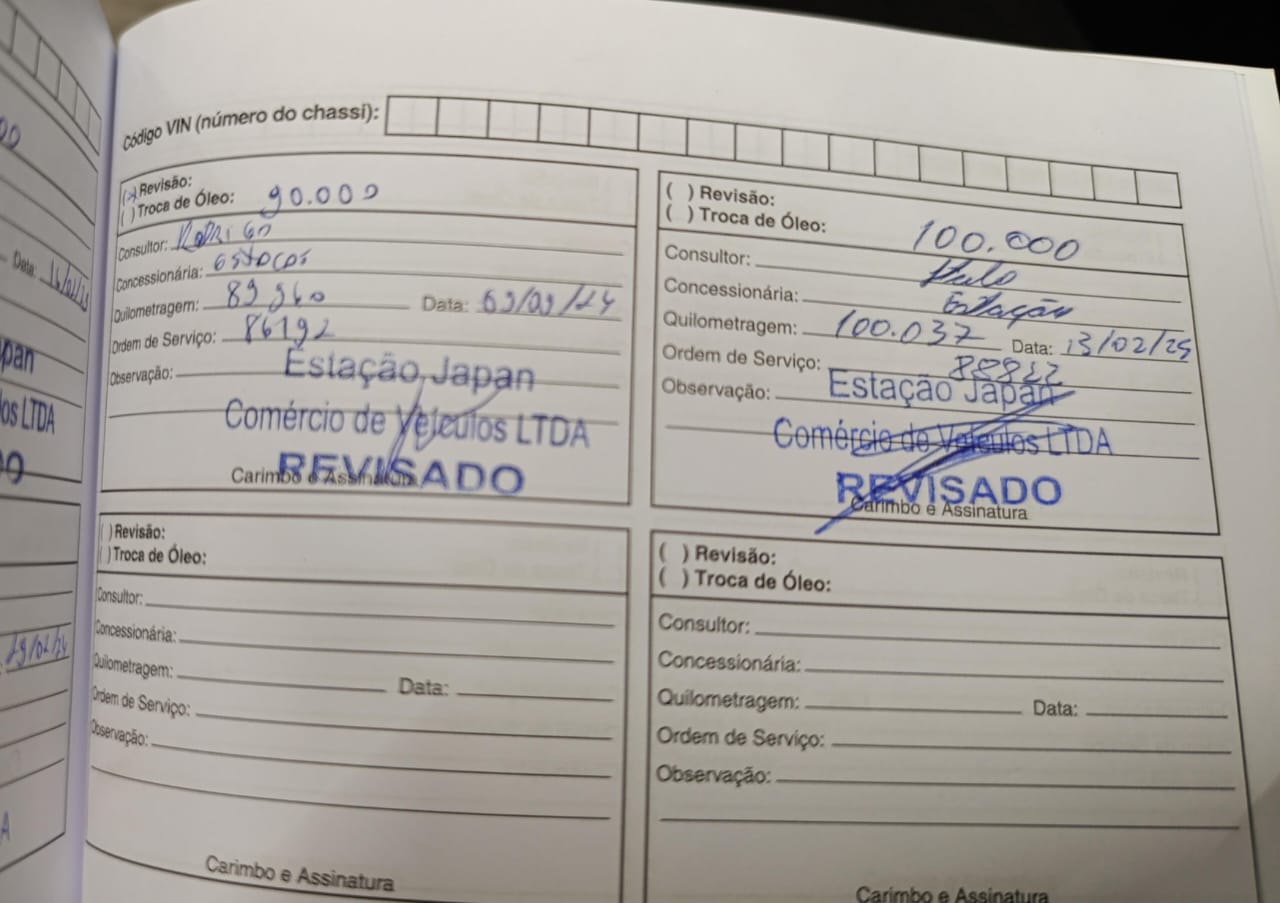 Código VIN (número do chassi):
(x) Revisão:
( ) Troca de Óleo: 90.000
Consultor: RODRIGO
Concessionária:
Quilometragem: 89960 Data: 09/09/24
Ordem de Serviço: 86192
Observação:
Estação Japan
Comércio de Veículos LTDA
REVISADO
Carimbo e Assinatura
( ) Revisão:
( ) Troca de Óleo: 100.000
Consultor:
Concessionária: Estação
Quilometragem: 100.037 Data: 13/02/25
Ordem de Serviço:
Observação:
Estação Japan
Comércio de Veículos LTDA
REVISADO
Carimbo e Assinatura
( ) Revisão:
( ) Troca de Óleo:
Consultor:
Concessionária:
Quilometragem: Data:
Ordem de Serviço:
Observação:
Carimbo e Assinatura
( ) Revisão:
( ) Troca de Óleo:
Consultor:
Concessionária:
Quilometragem: Data:
Ordem de Serviço:
Observação:
Carimbo e Assinatura